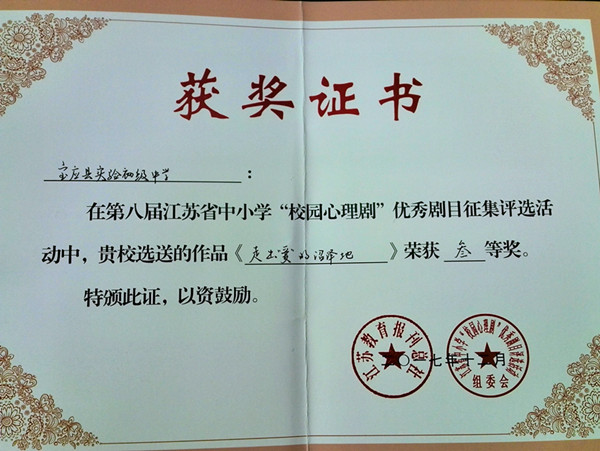 获奖证书
宝应县实验初级中学：
在第八届江苏省中小学“校园心理剧”优秀剧目征集评选活
动中，贵校选送的作品《走出爱的沼泽地》荣获 叁 等奖。
特颁此证，以资鼓励。
江苏教育报刊总社
组委会